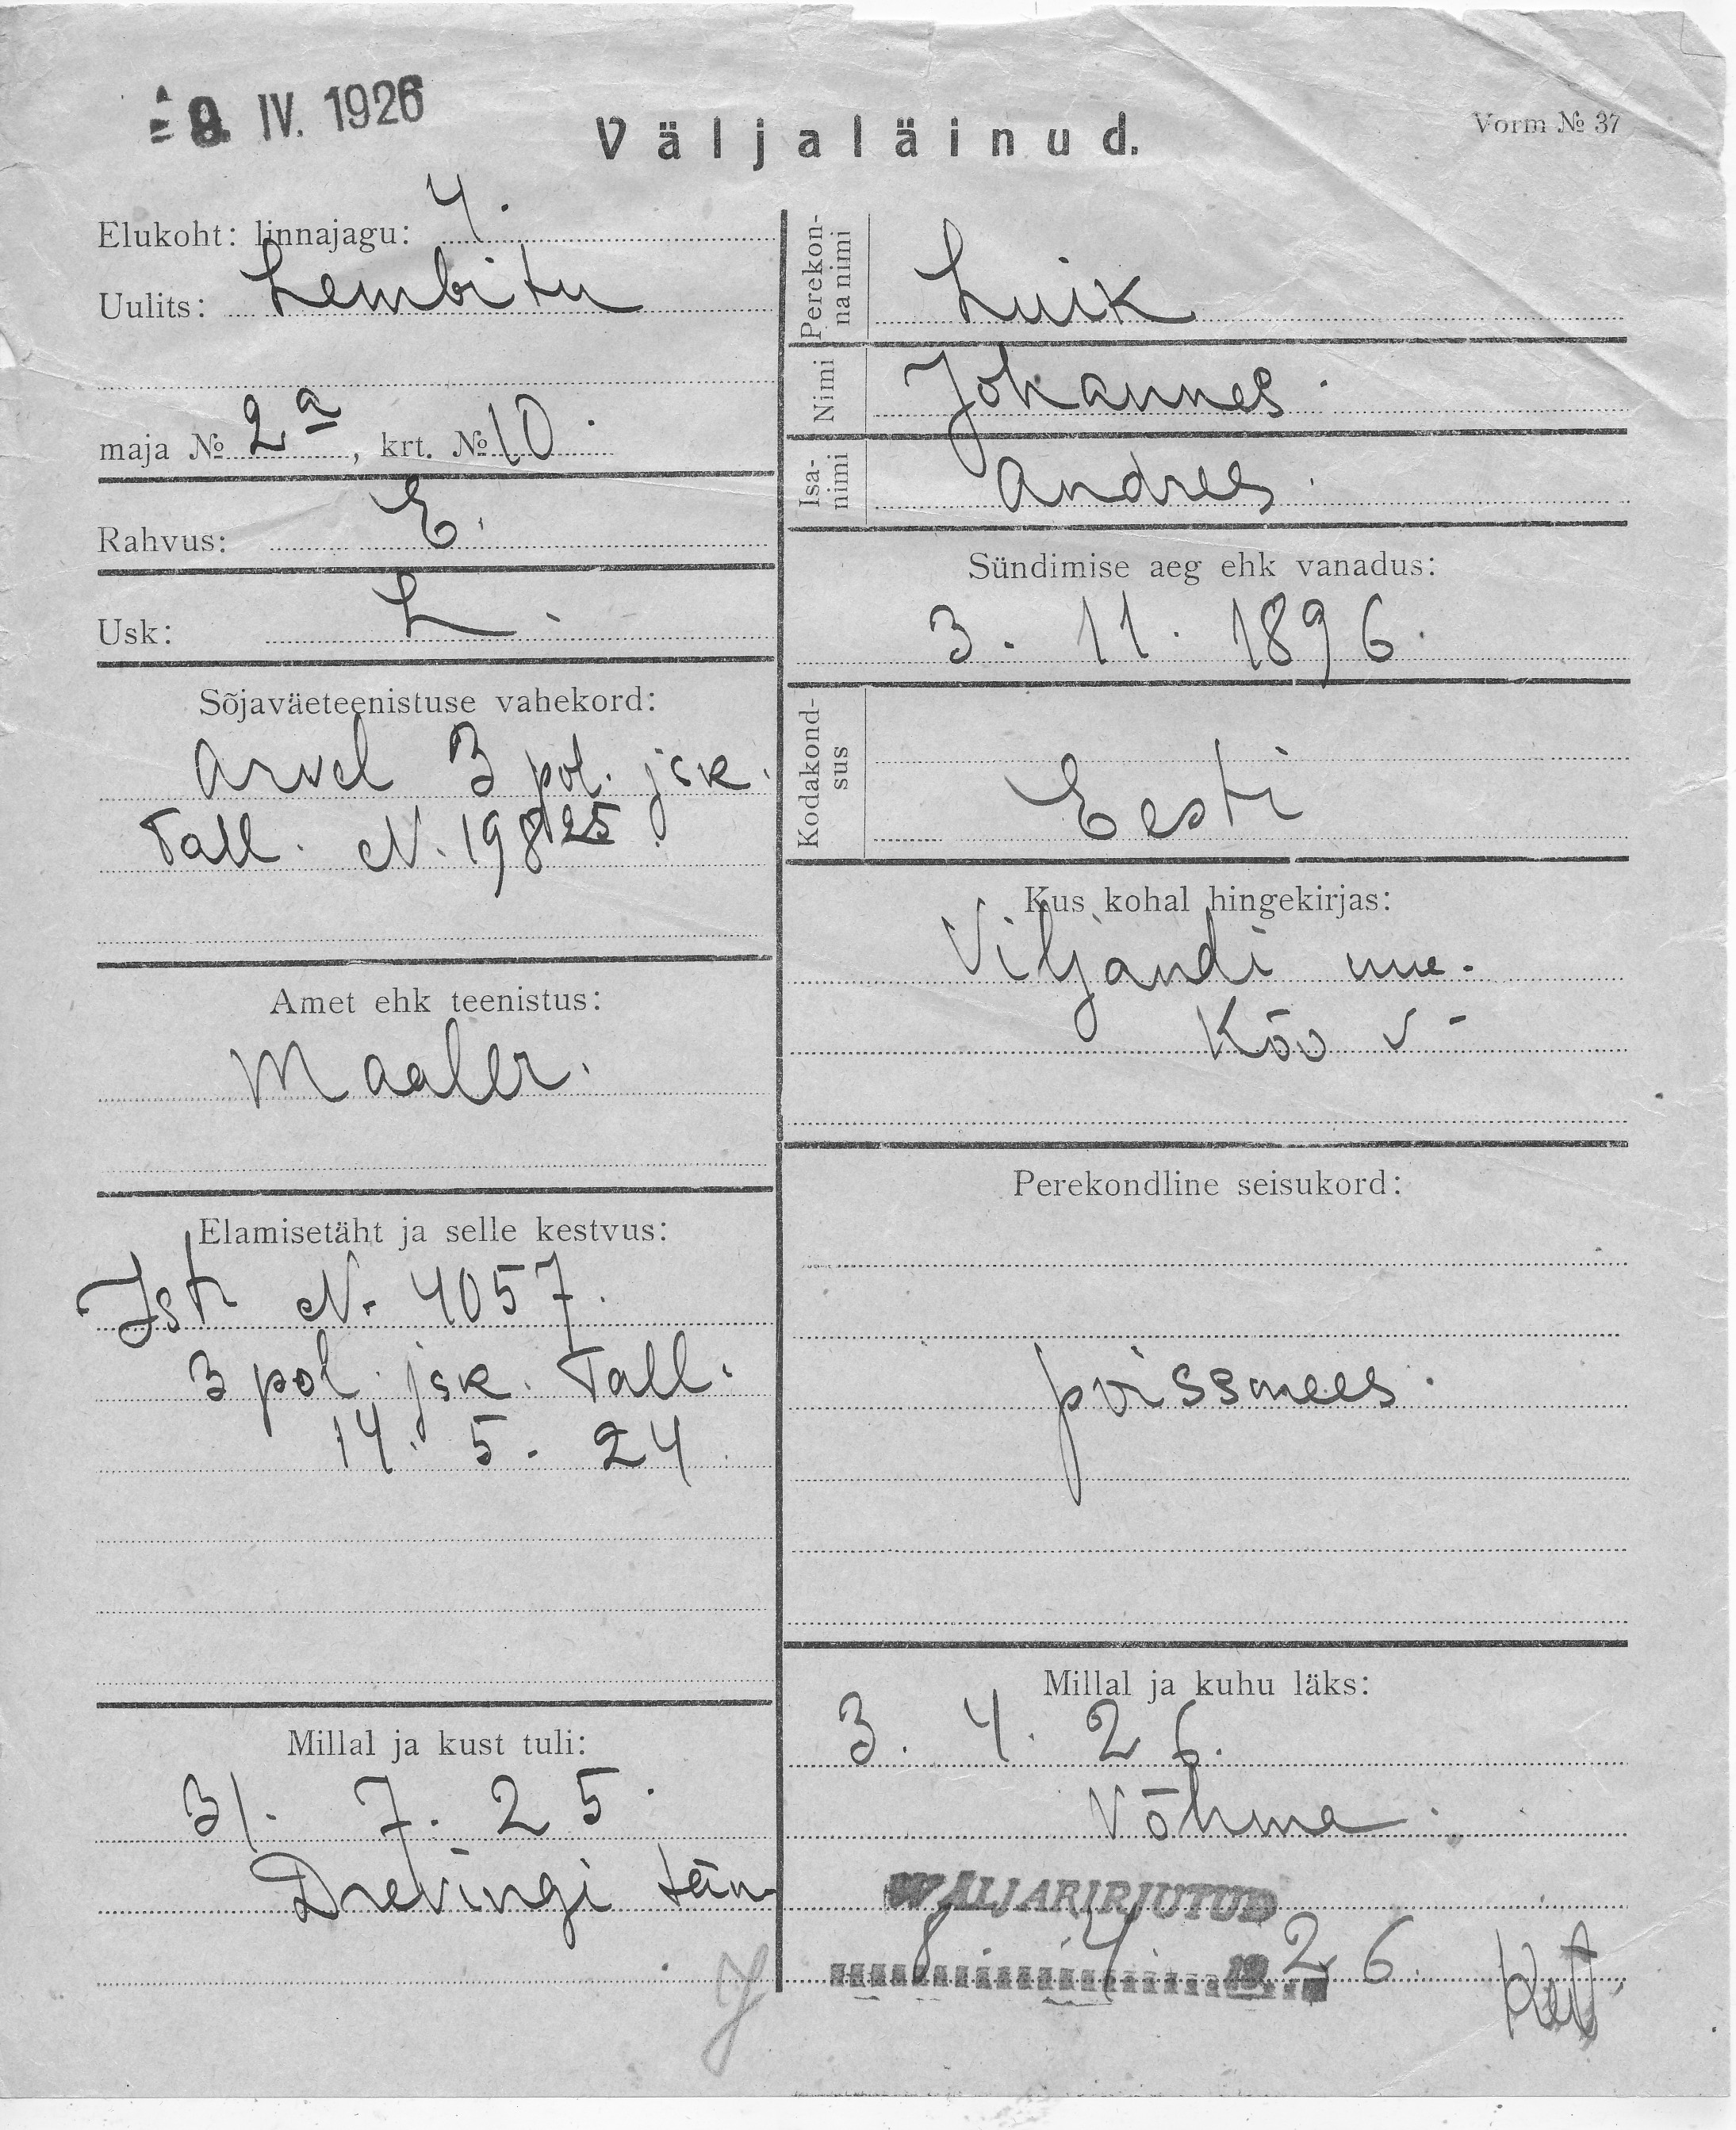 9. IV. 1926
Väljaläinud.
Vorm № 37
Elukoht: linnajagu: 4.
Uulits: Lembitu
maja № 2a, krt. № 10.
Rahvus: E.
Usk: L.
Sõjaväeteenistuse vahekord:
Arvel 3 pol. jsk.
Tall. N. 19825
Amet ehk teenistus:
Maaler.
Elamisetäht ja selle kestvus:
Ist N. 4057.
3 pol. jsk. Tall.
14. 5. 24.
Millal ja kust tuli:
31. 7. 25.
Drevingi tän.
Perekon-
na nimi
Luik
Nimi
Johannes.
Isa-
nimi
Andres.
Sündimise aeg ehk vanadus:
3. 11. 1896.
Kodakond-
sus
Eesti
Kus kohal hingekirjas:
Viljandi mr.
Kõo v-
Perekondline seisukord:
poissmees.
Millal ja kuhu läks:
3. 4. 26.
Võhma.
WÄLJAKIRJUTUD
8. 4. 1926.